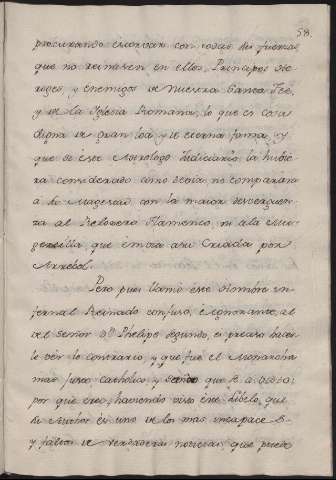 58.
procurando estorvar con todas sus fuerzas,
que no reinasen en ellos, Principes he-
reges y enemigos de nuestra Santa Fée,
y de la Iglesia Romana, lo que es cosa
digna de gran loa, y de eterna fama, y
que si este Astrologo Judiciario la hubie
ra considerado como devia, no comparára
a su Magestad con la maior desverguen-
za al Reloxero Flamenco, ni a la mu-
gercilla que embia a su Criada por
Arrebol.
Pero pues llamó este Hombre in-
fernal Reinado confuso, e constante, al
del señor Dn. Phelipe segundo, es preciso hacer
le ver lo contrario, y que fué el Monarcha
mas justo catholico, y que
por que creo, haviendo visto este Libelo, que
su Author es uno de los mas incapaces
y faltos de verdaderas noticias, que puede